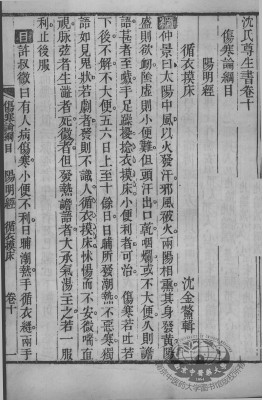 沈氏尊生書卷十
傷寒論綱目
陽明經
循衣摸床
沈金鰲輯
仲景曰太陽中風以火發汗邪風被火兩陽相熏其身發黃陽
盛則欲衄陰虛則小便難但頭汗出口乾咽爛或不大便久則譫
語甚者至噦手足躁擾捻衣摸床小便利者可治 傷寒若吐若
下後不解不大便五六日上至十餘日日晡所發潮熱不惡寒獨
語如見鬼狀若劇者發則不識人循衣摸床怵惕而不安微喘直
視脉弦者生濇者死微者但發熱譫語者大承氣湯主之若一服
利止後服
目許叔微曰有人病傷寒小便不利日晡潮熱手循衣縫兩手
傷寒論綱目 陽明經 循衣摸床 卷十